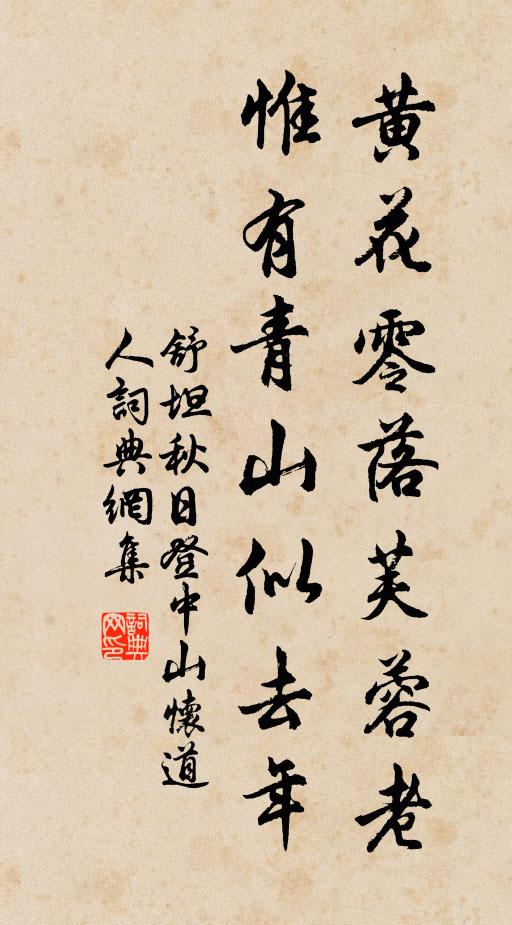 黄花零落芙蓉老
惟有青山似去年
舒坦秋日登中山懷道
人詞典網集
詞典
网印